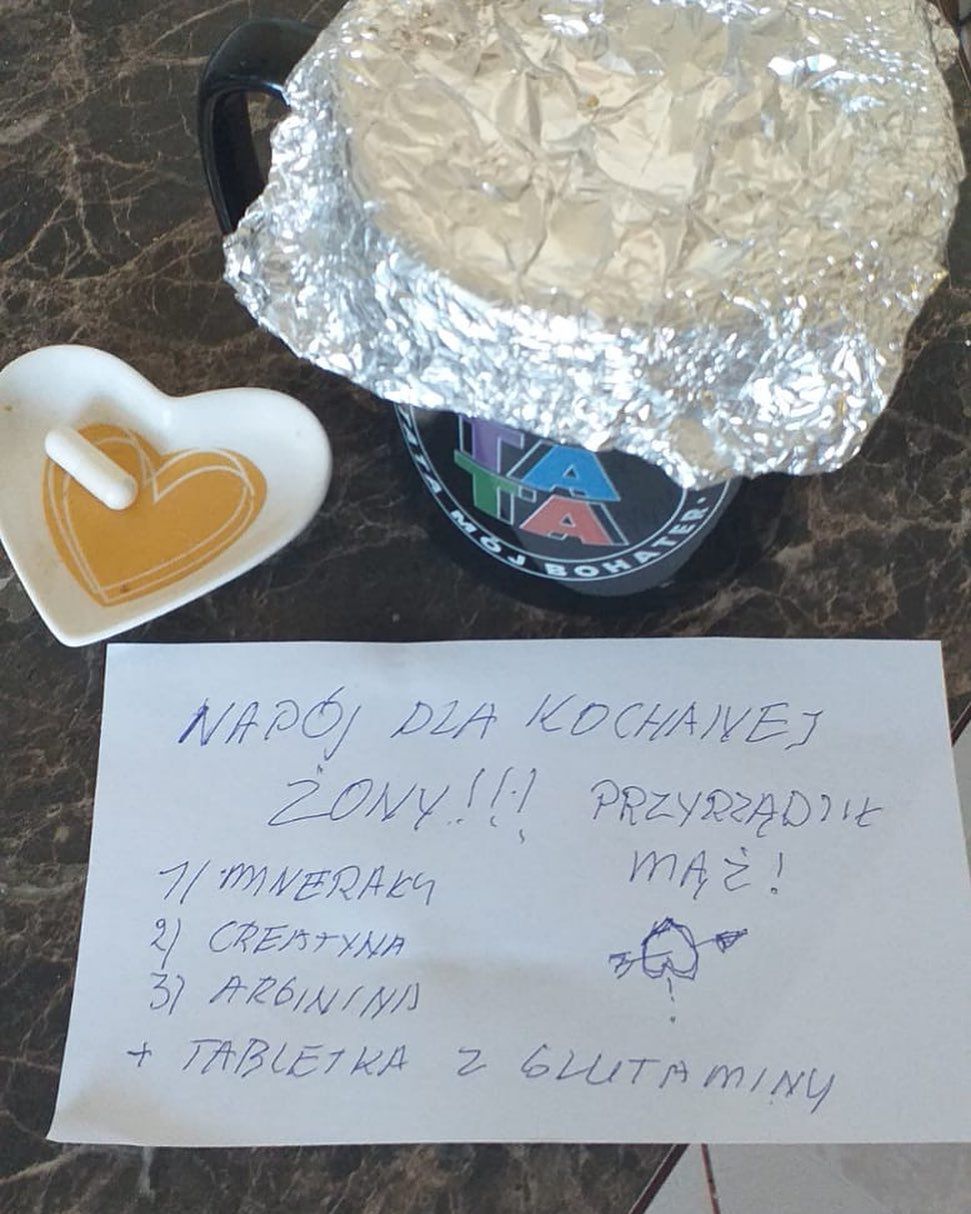 TA
TA
TATA MÓJ BOHATER
NAPÓJ DLA KOCHANEJ
ŻONY!!! PRZYRZĄDZIŁ
MĄŻ!
1) MINERAŁY
2) CREATYNA
3) ARGININA
+ TABLETKA Z GLUTAMINY